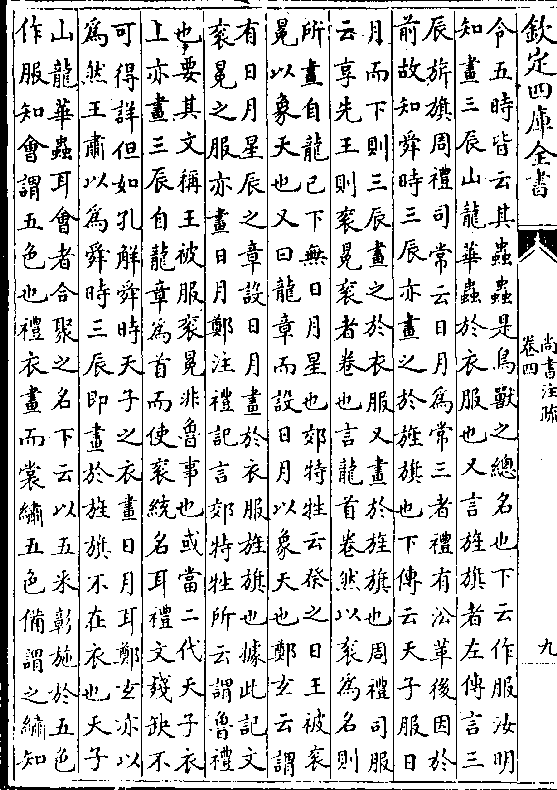 欽定四庫全書
尚書注疏
卷四
九
令五時皆云其蟲蟲是鳥獸之總名也下云作服汝明
知畫三辰山龍華蟲於衣服也又言旌旗者左傳言三
辰旂旗周禮司常云日月為常三者禮有沿革後因於
前故知舜時三辰亦畫之於旌旗也下傳云天子服日
月而下則三辰畫之於衣服又畫於旌旗也周禮司服
云享先王則袞冕袞者卷也言龍首卷然以袞為名則
所畫自龍已下無日月星也郊特牲云癸之日王被袞
冕以象天也又曰龍章而設日月以象天也鄭玄云謂
有日月星辰之章設日月畫於衣服旌旗也據此記文
袞冕之服亦畫日月鄭注禮記言郊特牲所云謂魯禮
也要其文稱王被服袞冕非魯事也或當二代天子衣
上亦畫三辰自龍章為首而使袞統名耳禮文殘缺不
可得詳但如孔解舜時天子之衣畫日月耳鄭玄亦以
為然王肅以為舜時三辰即畫於旌旗不在衣也天子
山龍華蟲耳會者合聚之名下云以五采彰施於五色
作服知會謂五色也禮衣畫而裳繡五色備謂之繡知